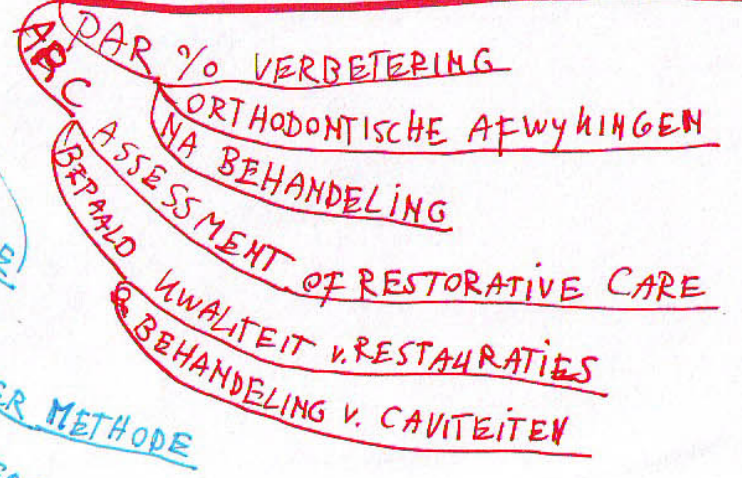 PAR % VERBETERING
ORTHODONTISCHE AFWYKINGEN
NA BEHANDELING
ARC ASSESSMENT OF RESTORATIVE CARE
BEPAALD KWALITEIT v. RESTAURATIES
& BEHANDELING v. CAVITEITEN
METHODE